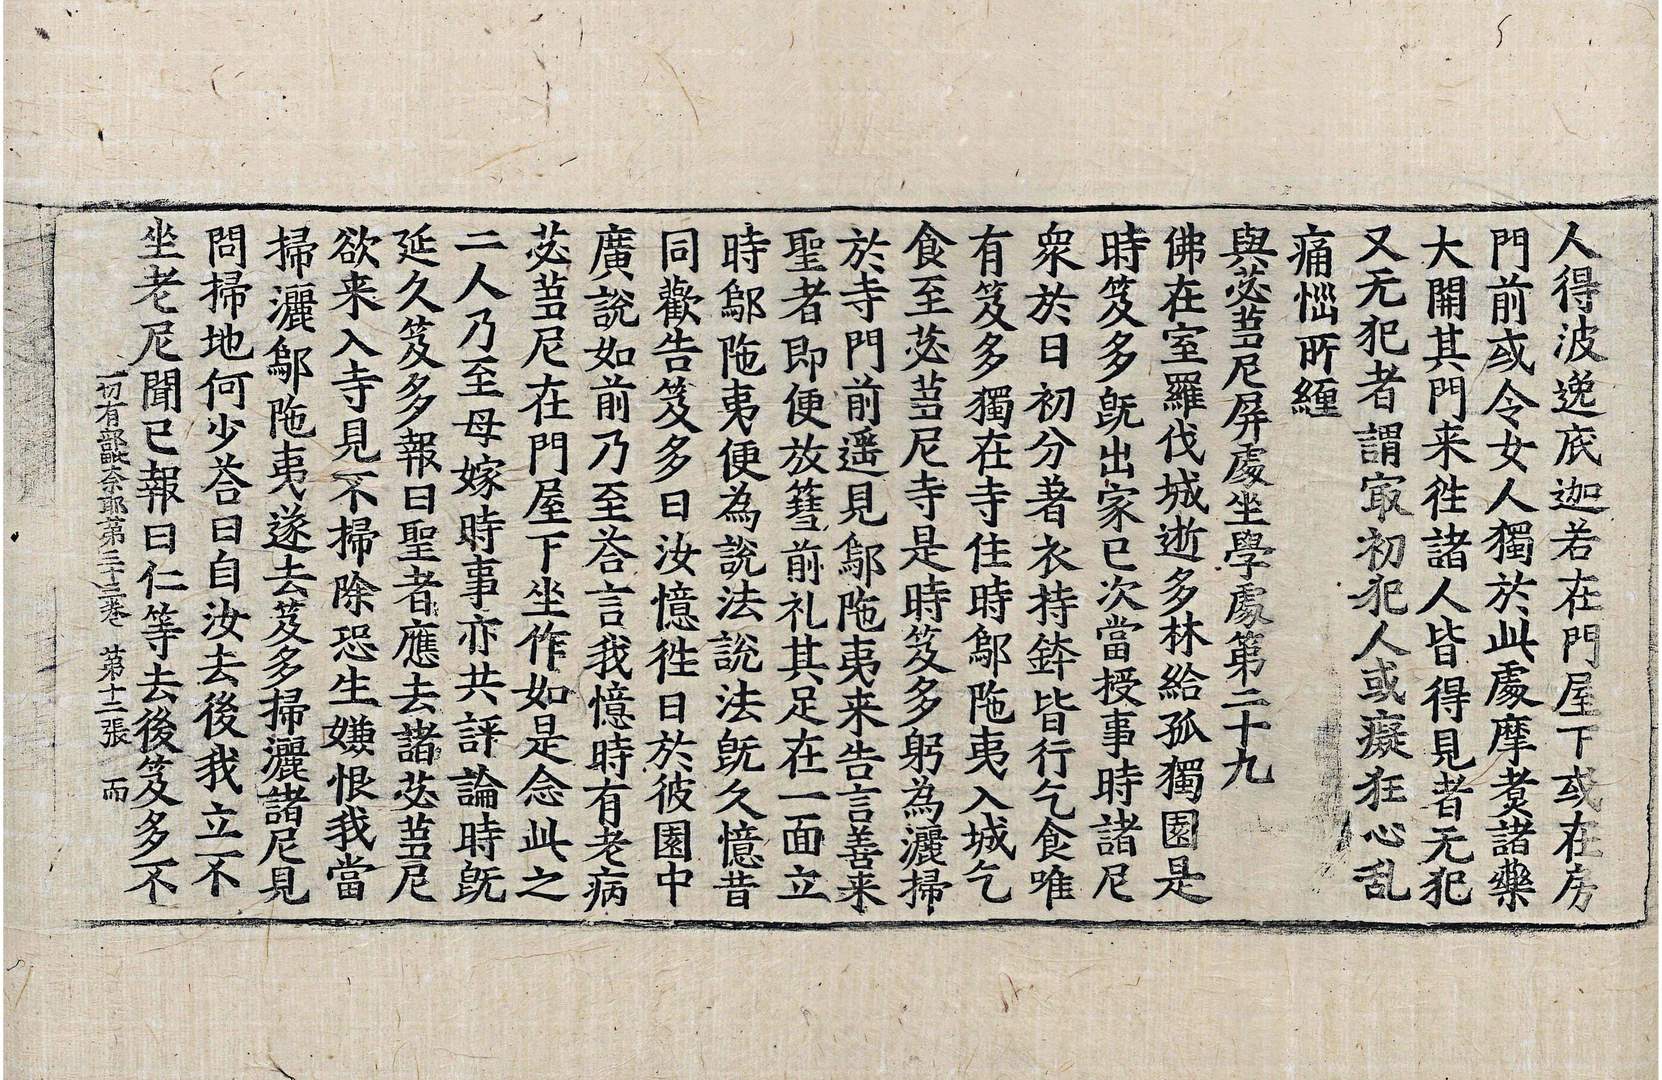 人得波逸底迦若在門屋下或在房
門前或令女人獨於此處摩煑諸藥
大開其門来往諸人皆得見者无犯
又无犯者謂㝡初犯人或癡狂心乱
痛惱所纏
與苾芻尼屏處坐學處第二十九
佛在室羅伐城逝多林給孤獨園是
時笈多旣出家已次當授事時諸尼
衆於日初分著衣持鉢皆行乞食唯
有笈多獨在寺住時鄔陁夷入城乞
食至苾芻尼寺是時笈多躬為灑掃
於寺門前遥見鄔陁夷来告言善来
聖者即便放篲前礼其足在一面立
時鄔陁夷便為說法說法旣久憶昔
同歡告笈多曰汝憶徃日於彼園中
廣說如前乃至荅言我憶時有老病
苾芻尼在門屋下坐作如是念此之
二人乃至母嫁時事亦共評論時旣
延久笈多報曰聖者應去諸苾芻尼
欲来入寺見不掃除恐生嫌恨我當
掃灑鄔陁夷遂去笈多掃灑諸尼見
問掃地何少荅曰自汝去後我立不
坐老尼聞已報曰仁等去後笈多不
一切有部毗奈耶第三十三卷 第十二張 而